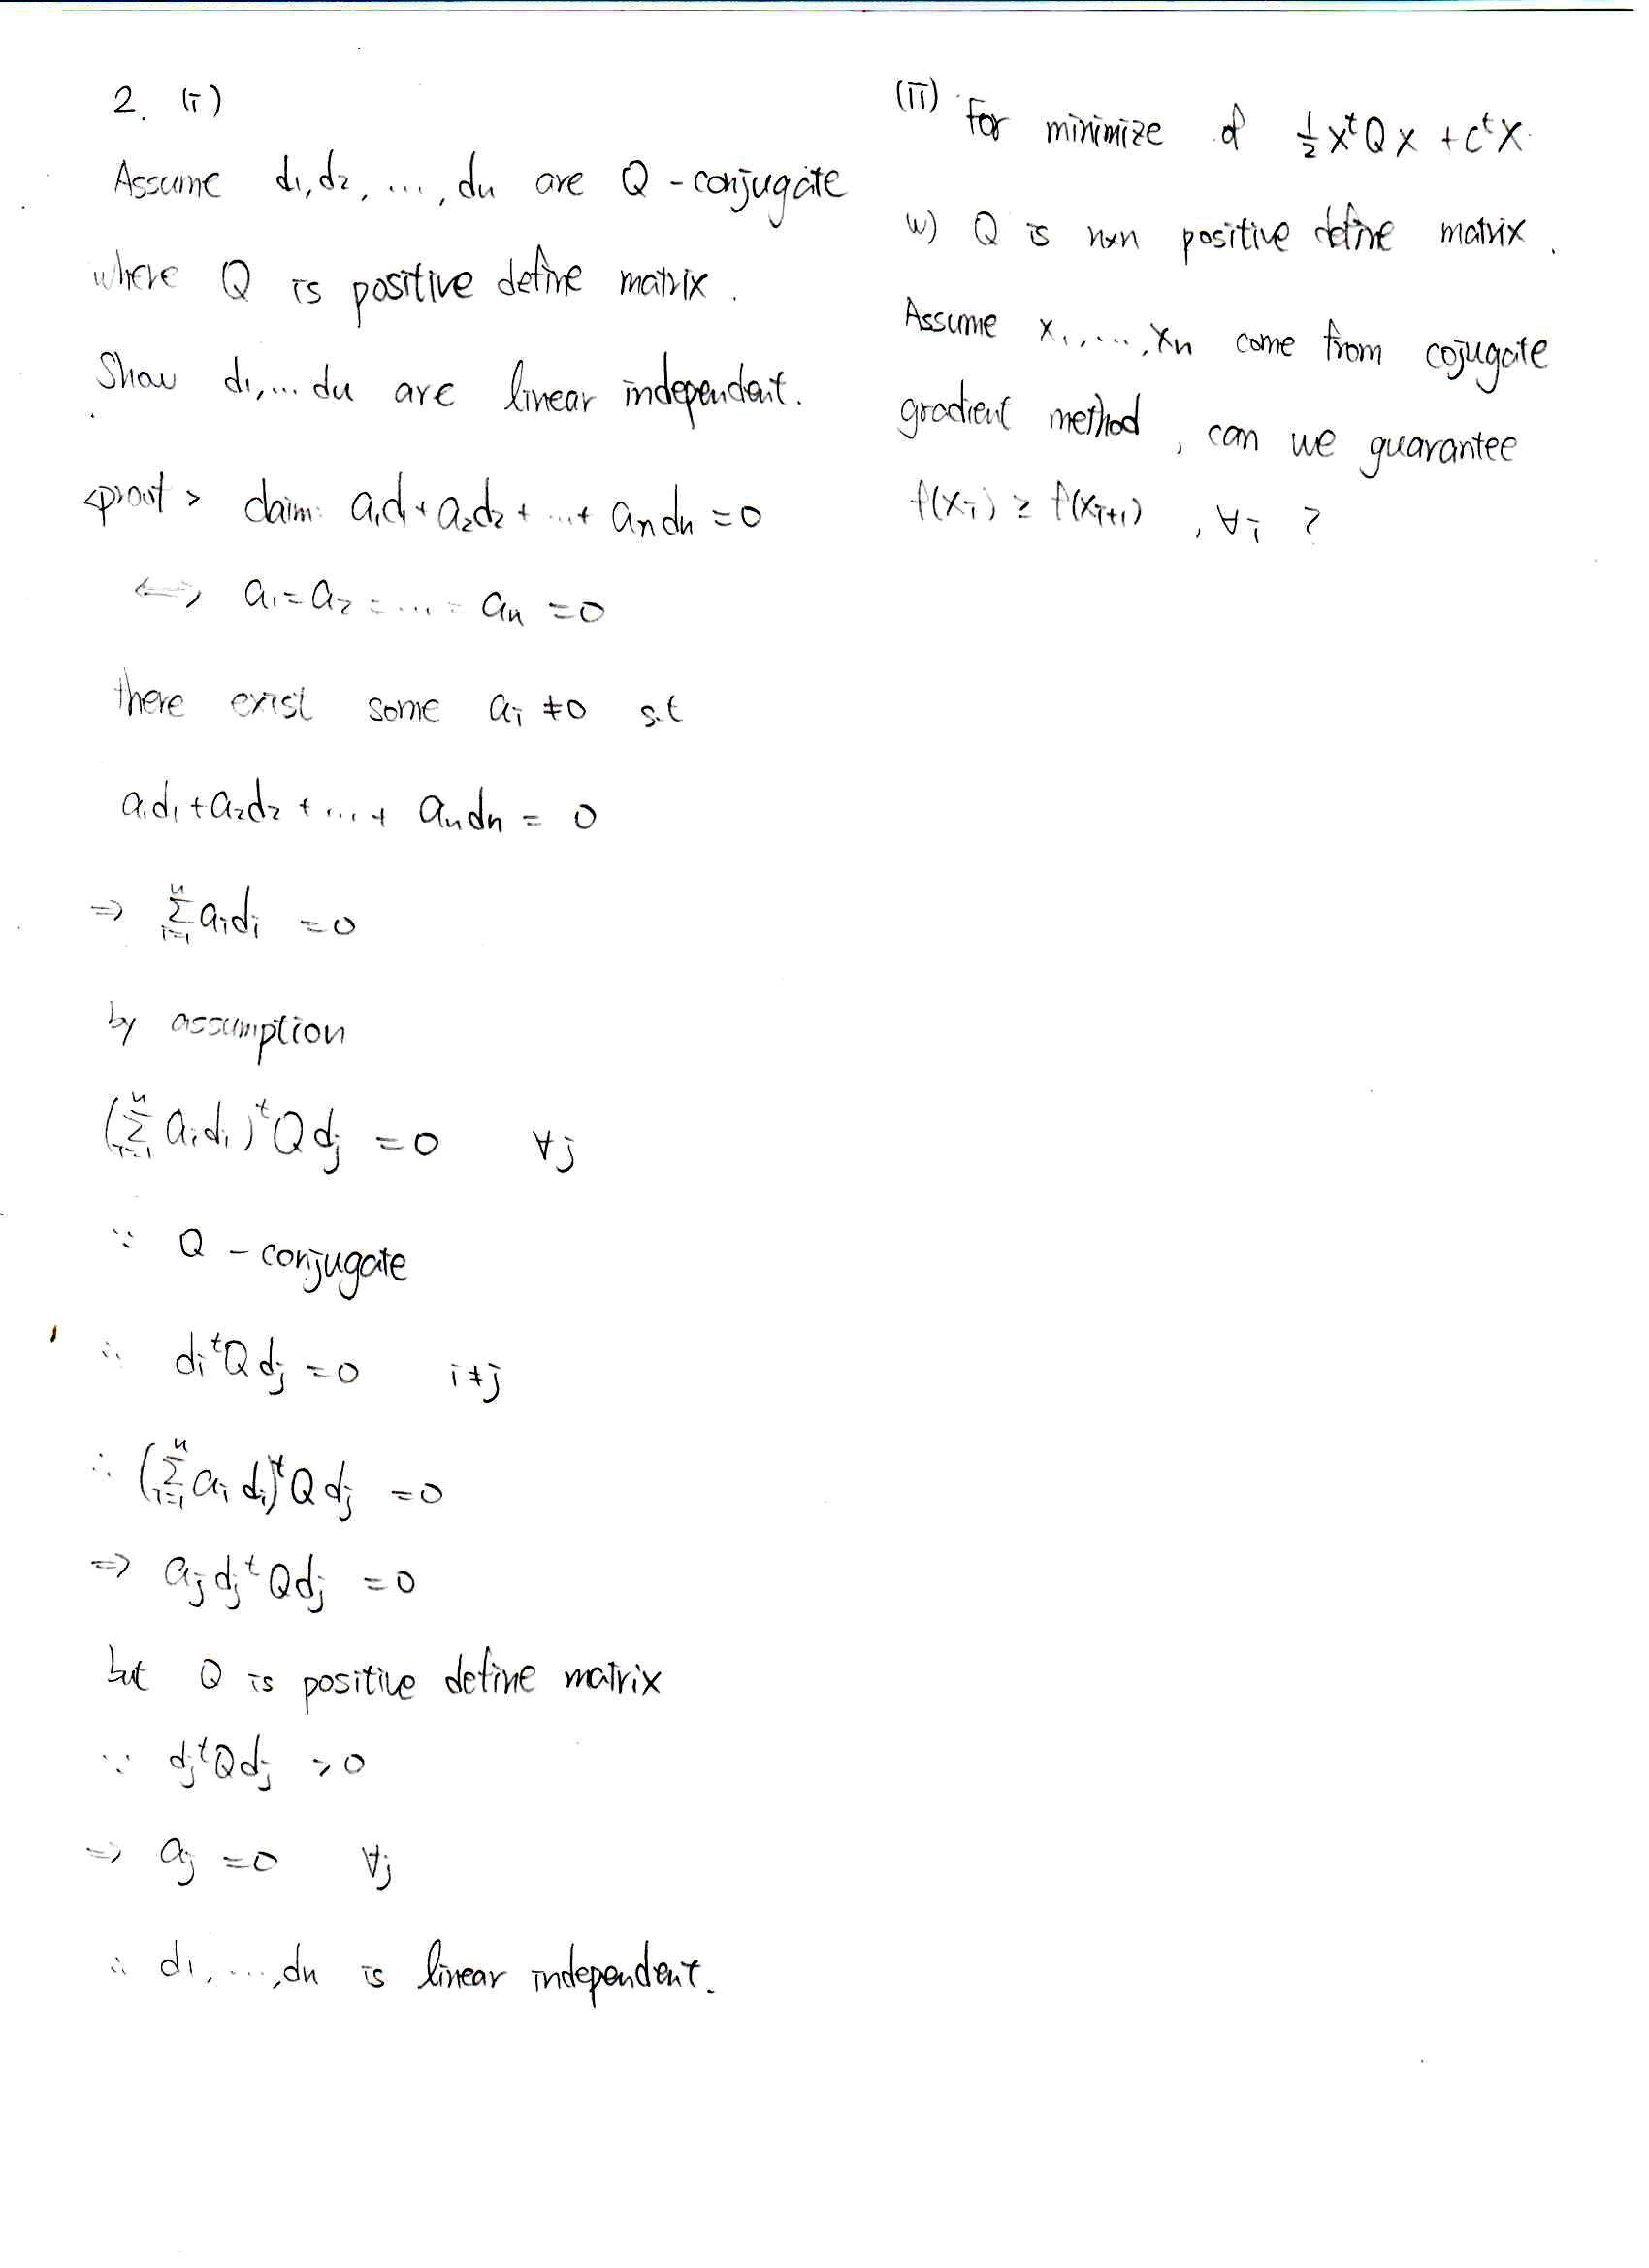 2. (i)
Assume d1, d2, ..., dn are Q-conjugate
where Q is positive define matrix.
Show d1, ... dn are linear independent.
<proof> claim: a1d1 + a2d2 + ... + andn = 0
⟺ a1 = a2 = ... = an = 0
there exist some ai ≠ 0 s.t
a1d1 + a2d2 + ... + andn = 0
⇒ Σ_{i=1}^{n} aidi = 0
by assumption
(Σ_{i=1}^{n} aidi)^t Q dj = 0 ∀j
∵ Q-conjugate
∴ di^t Q dj = 0 i≠j
∴ (Σ_{i=1}^{n} ai di)^t Q dj = 0
⇒ aj dj^t Q dj = 0
but Q is positive define matrix
∵ dj^t Q dj > 0
⇒ aj = 0 ∀j
∴ d1, ..., dn is linear independent.
(ii) For minimize of ½ x^t Q x + c^t x
w) Q is n×n positive define matrix.
Assume x1, ..., xn come from cojugate
gradient method, can we guarantee
f(xi) ≥ f(xi+1), ∀i ?